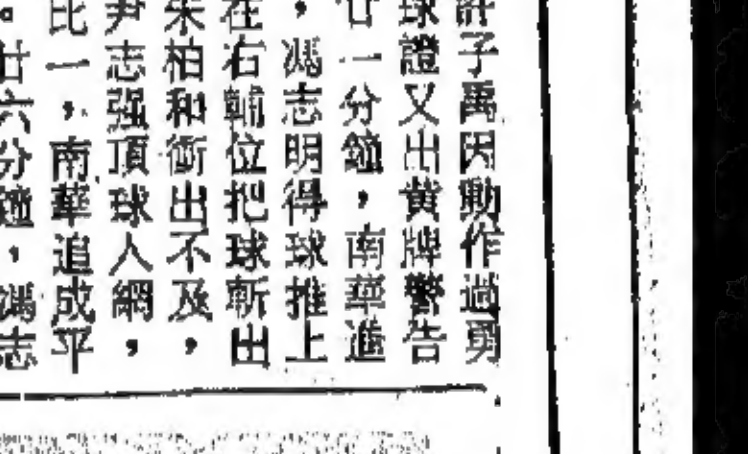 許子禹因動作過勇
球證又出黃牌警告
廿一分鐘，南華進
，馮志明得球推上
在右輔位把球斬出
朱柏和衝出不及，
尹志强頂球人網，
比一，南華追成平
。廿六分鐘，馮志